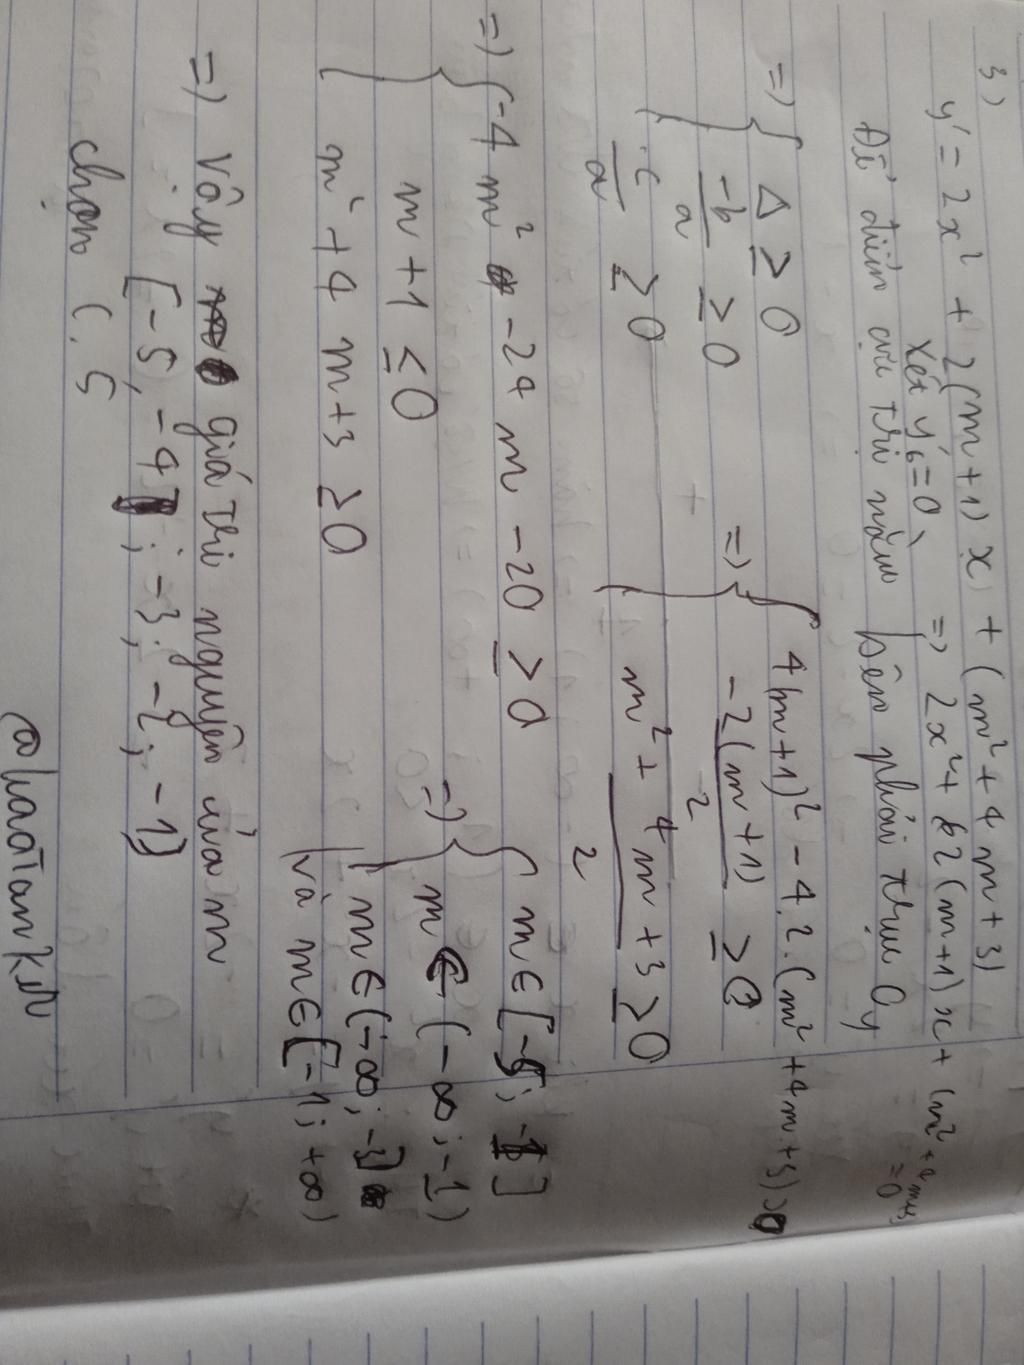 3)
y' = 2x² + 2(m+1)x + (m² + 4m + 3)
xét y' = 0, => 2x² + 2(m+1)x + (m² + 4m+3) = 0
Để điểm cực trị nằm bên phải trục Oy
=> { Δ ≥ 0 => { 4(m+1)² - 4.2.(m² + 4m + 3) ≥ 0
-b/a ≥ 0 -2(m+1)/2 ≥ 0
c/a ≥ 0 m² + 4m + 3/2 ≥ 0
=> { -4m² - 24m - 20 ≥ 0 => { m ∈ [-5; -1]
m+1 ≤ 0 m ∈ (-∞; -1)
m² + 4m+3 ≥ 0 m ∈ (-∞; -3]
và m ∈ [-1; +∞)
=> Vậy giá trị nguyên của m
[-5, -4; -3; -2; -1)
chọn C. 5
@